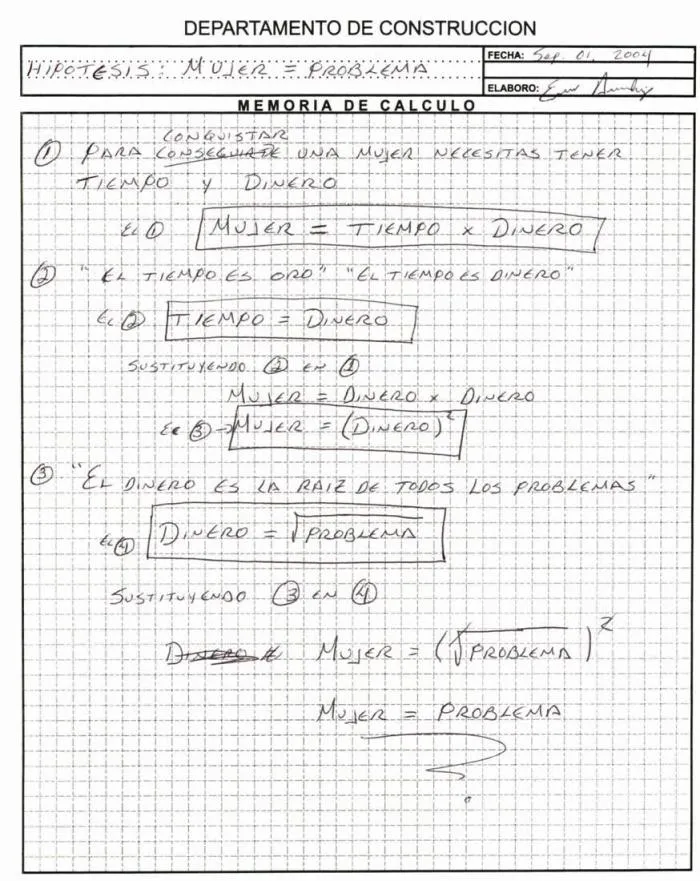 DEPARTAMENTO DE CONSTRUCCION
HIPOTESIS: MUJER = PROBLEMA
FECHA: Sep. 01, 2004
ELABORO:
MEMORIA DE CALCULO
CONQUISTAR
① PARA CONSEGUIRTE UNA MUJER NECESITAS TENER
TIEMPO Y DINERO
Ec ① MUJER = TIEMPO x DINERO
② "EL TIEMPO ES ORO" "EL TIEMPO ES DINERO"
Ec ② TIEMPO = DINERO
SUSTITUYENDO ② EN ①
MUJER = DINERO x DINERO
Ec ③ → MUJER = (DINERO)²
③ "EL DINERO ES LA RAIZ DE TODOS LOS PROBLEMAS"
Ec ④ DINERO = √PROBLEMA
SUSTITUYENDO ③ EN ④
DINERO MUJER = (√PROBLEMA)²
MUJER = PROBLEMA